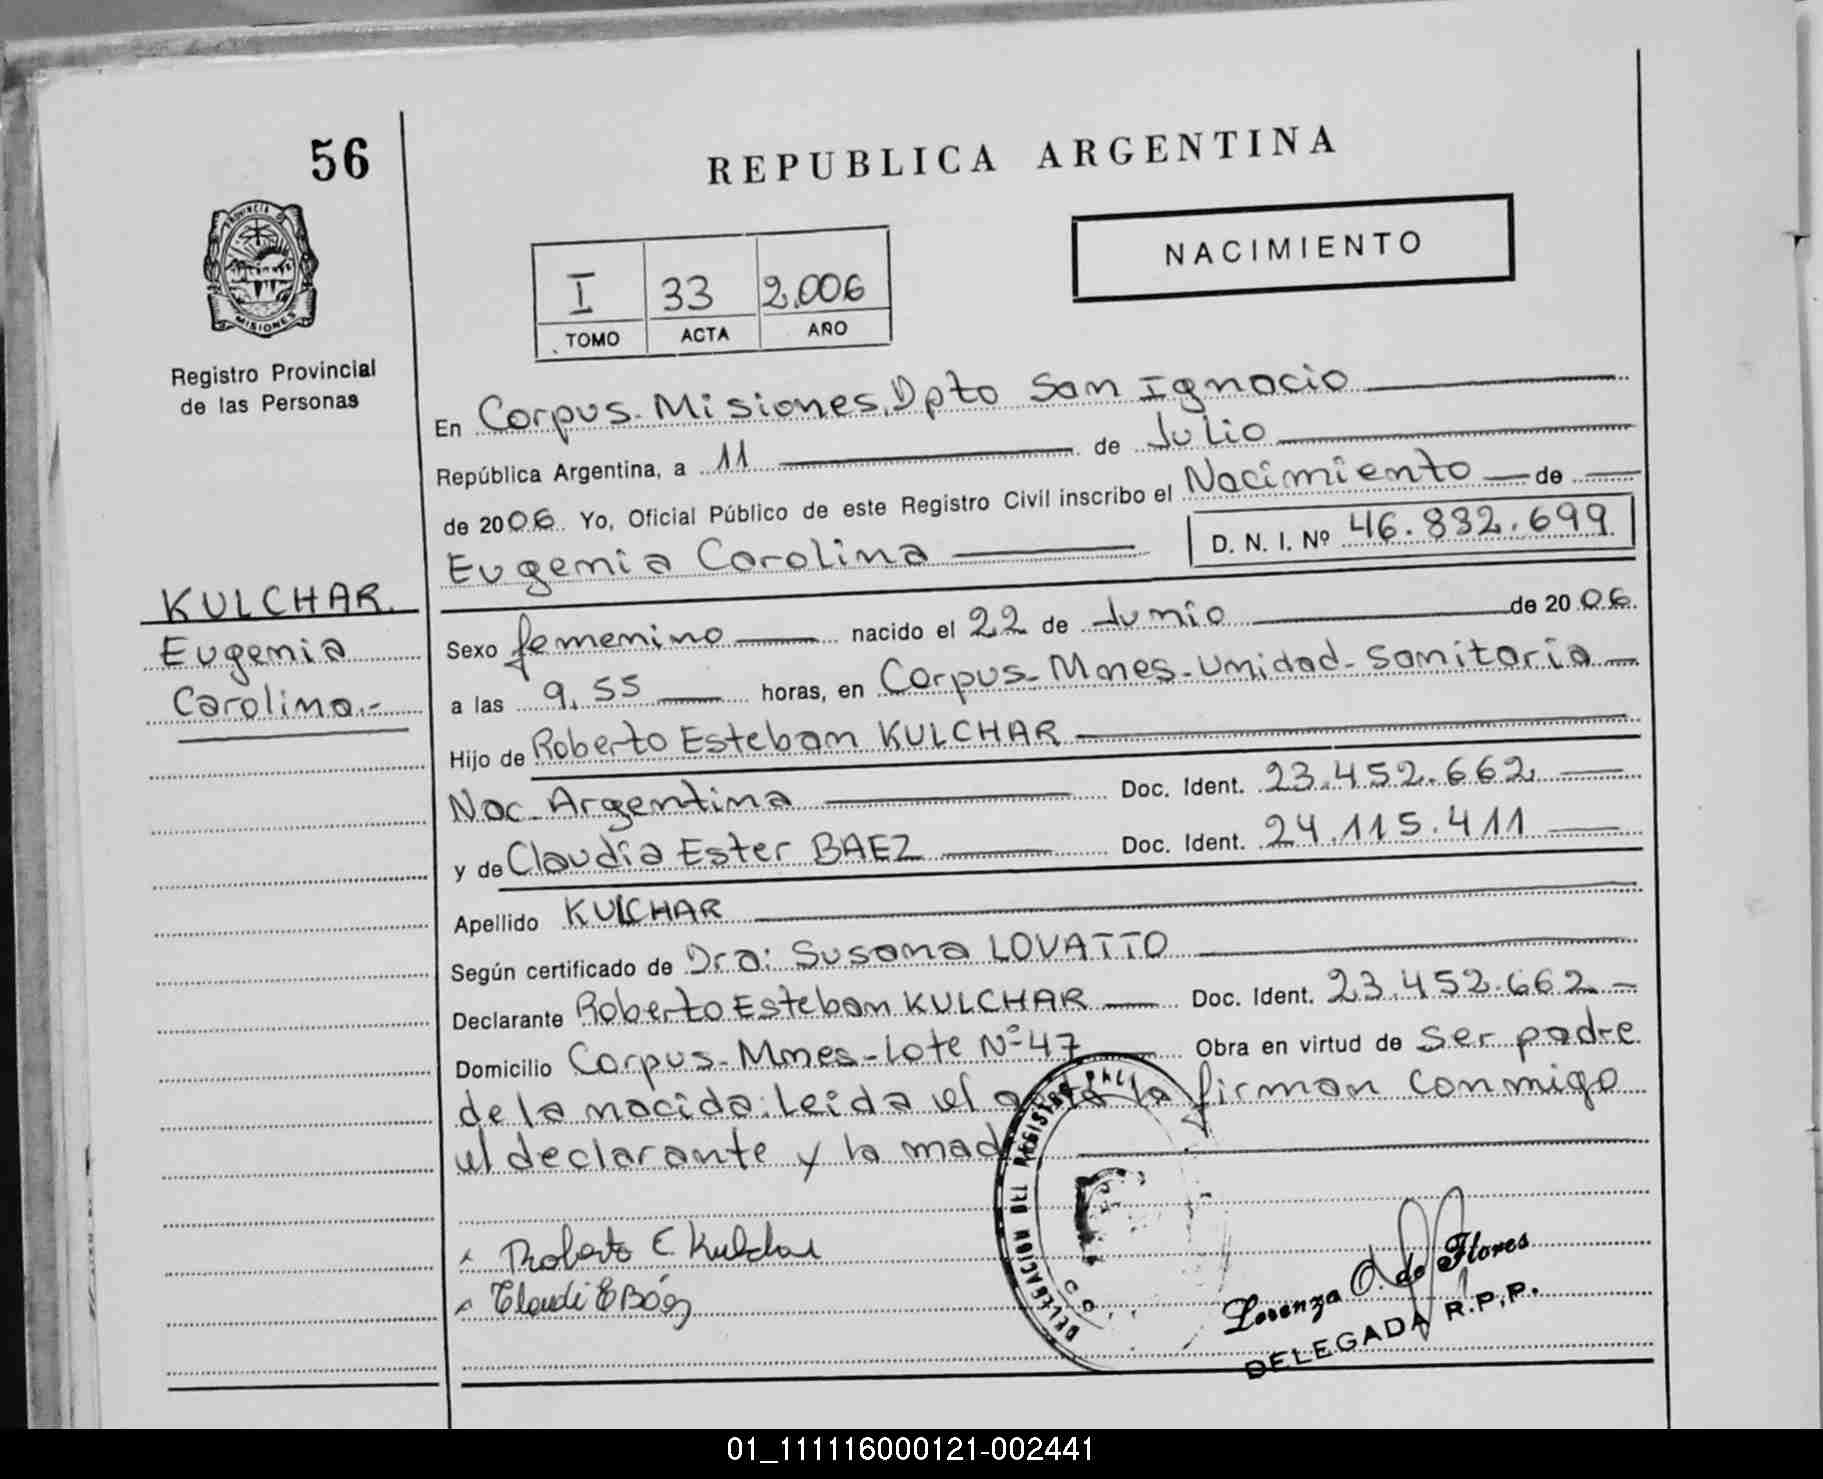 56
REPUBLICA ARGENTINA
PROVINCIA DE
MISIONES
Registro Provincial
de las Personas
NACIMIENTO
I 33 2.006
TOMO ACTA AÑO
En Corpus-Misiones, Dpto San Ignacio
República Argentina, a 11 de Julio
de 2006 Yo, Oficial Público de este Registro Civil inscribo el Nacimiento de
Eugenia Carolina D. N. I. Nº 46.832.699
KULCHAR
Eugenia
Carolina.-
Sexo femenino nacido el 22 de Junio de 2006.
a las 9,55 horas, en Corpus-Mnes-Unidad-Sanitaria
Hijo de Roberto Esteban KULCHAR
Nac. Argentina Doc. Ident. 23.452.662
y de Claudia Ester BAEZ Doc. Ident. 24.115.411
Apellido KULCHAR
Según certificado de Dra: Susana LOVATTO
Declarante Roberto Esteban KULCHAR Doc. Ident. 23.452.662
Domicilio Corpus-Mnes-Lote Nº 47 Obra en virtud de ser padre
de la nacida: Leida el acta la firman conmigo
el declarante y la mad
DELEGACION DEL REGISTRO
Roberto E. Kulchar
Claudi E Báez
Lorenza O. de Flores
DELEGADA R.P.P.
01_111116000121-002441